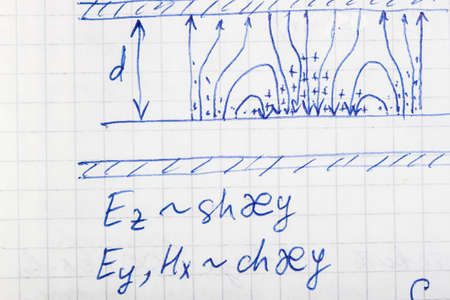 d
E_z ~ shæy
E_y, H_x ~ chæy